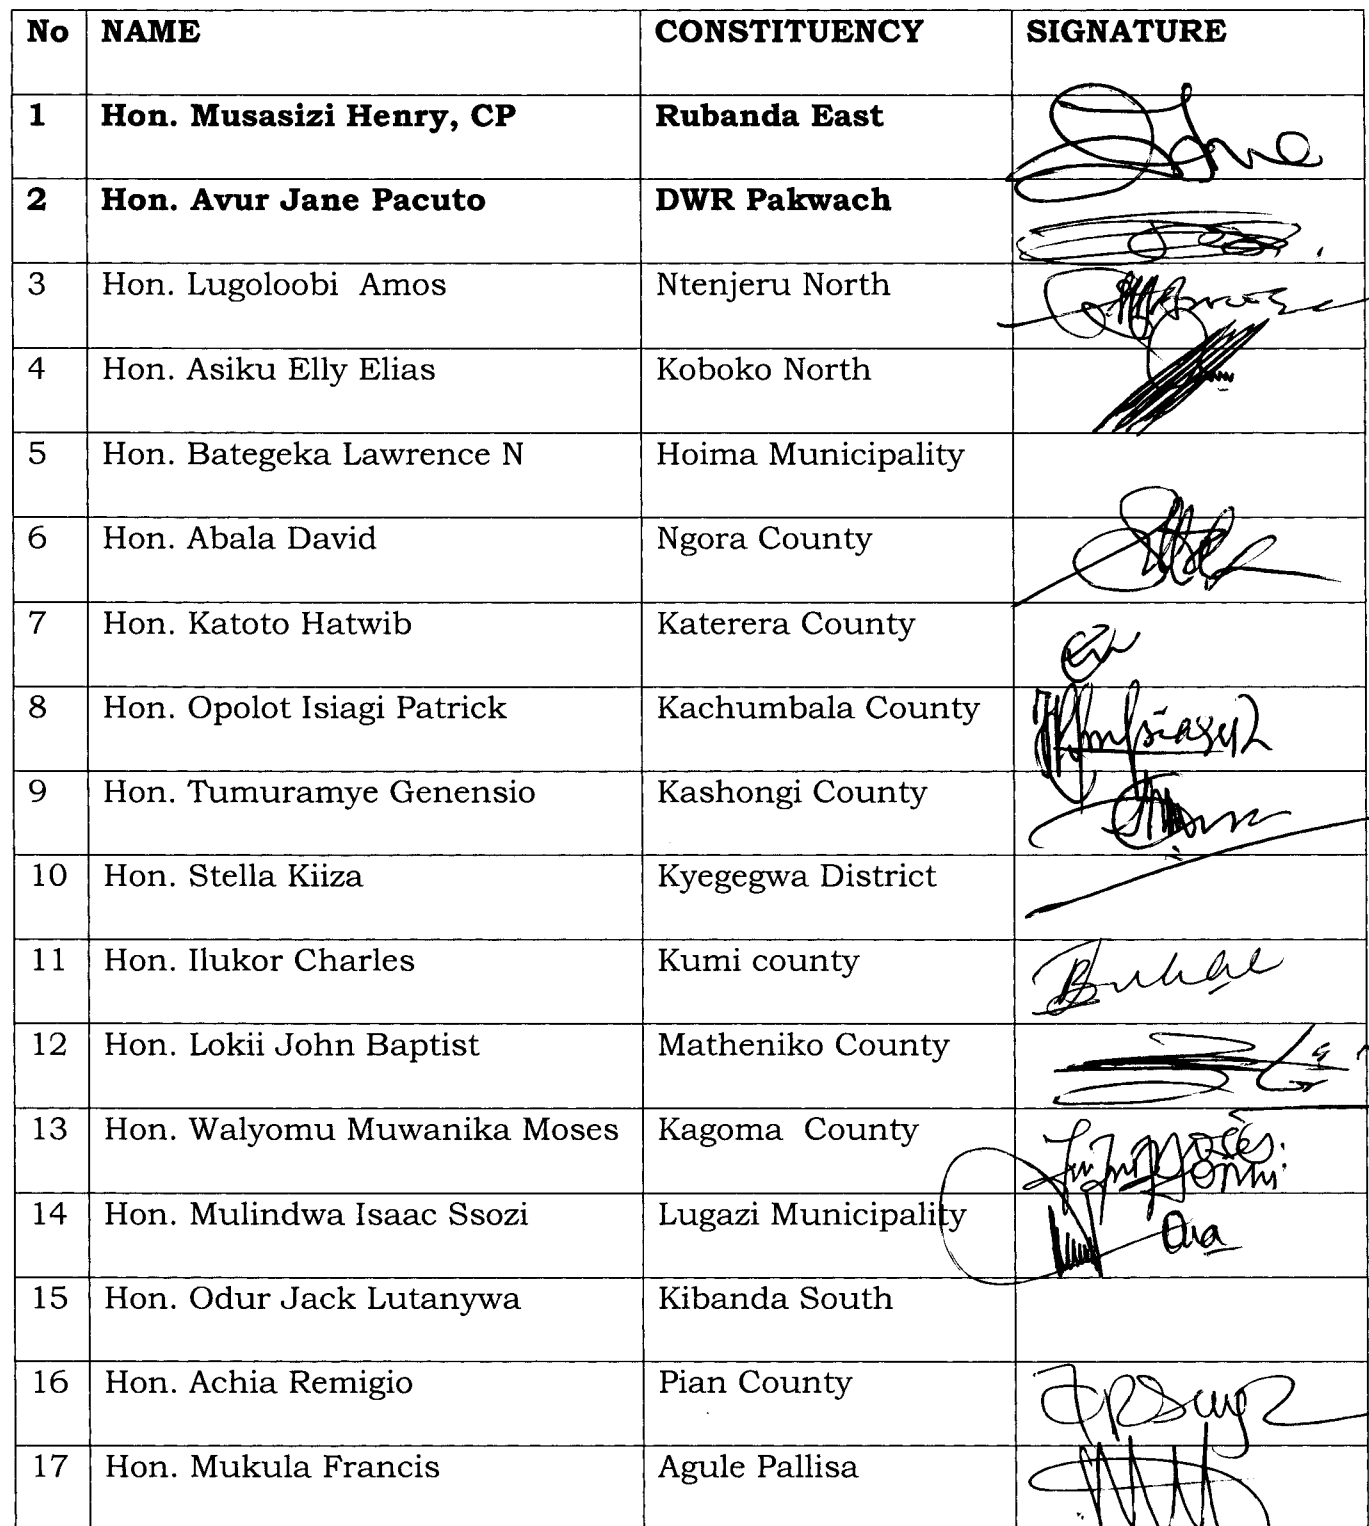 No NAME CONSTITUENCY SIGNATURE
1 Hon. Musasizi Henry, CP Rubanda East
2 Hon. Avur Jane Pacuto DWR Pakwach
3 Hon. Lugoloobi Amos Ntenjeru North
4 Hon. Asiku Elly Elias Koboko North
5 Hon. Bategeka Lawrence N Hoima Municipality
6 Hon. Abala David Ngora County
7 Hon. Katoto Hatwib Katerera County
8 Hon. Opolot Isiagi Patrick Kachumbala County
9 Hon. Tumuramye Genensio Kashongi County
10 Hon. Stella Kiiza Kyegegwa District
11 Hon. Ilukor Charles Kumi county
12 Hon. Lokii John Baptist Matheniko County
13 Hon. Walyomu Muwanika Moses Kagoma County
14 Hon. Mulindwa Isaac Ssozi Lugazi Municipality
15 Hon. Odur Jack Lutanywa Kibanda South
16 Hon. Achia Remigio Pian County
17 Hon. Mukula Francis Agule Pallisa